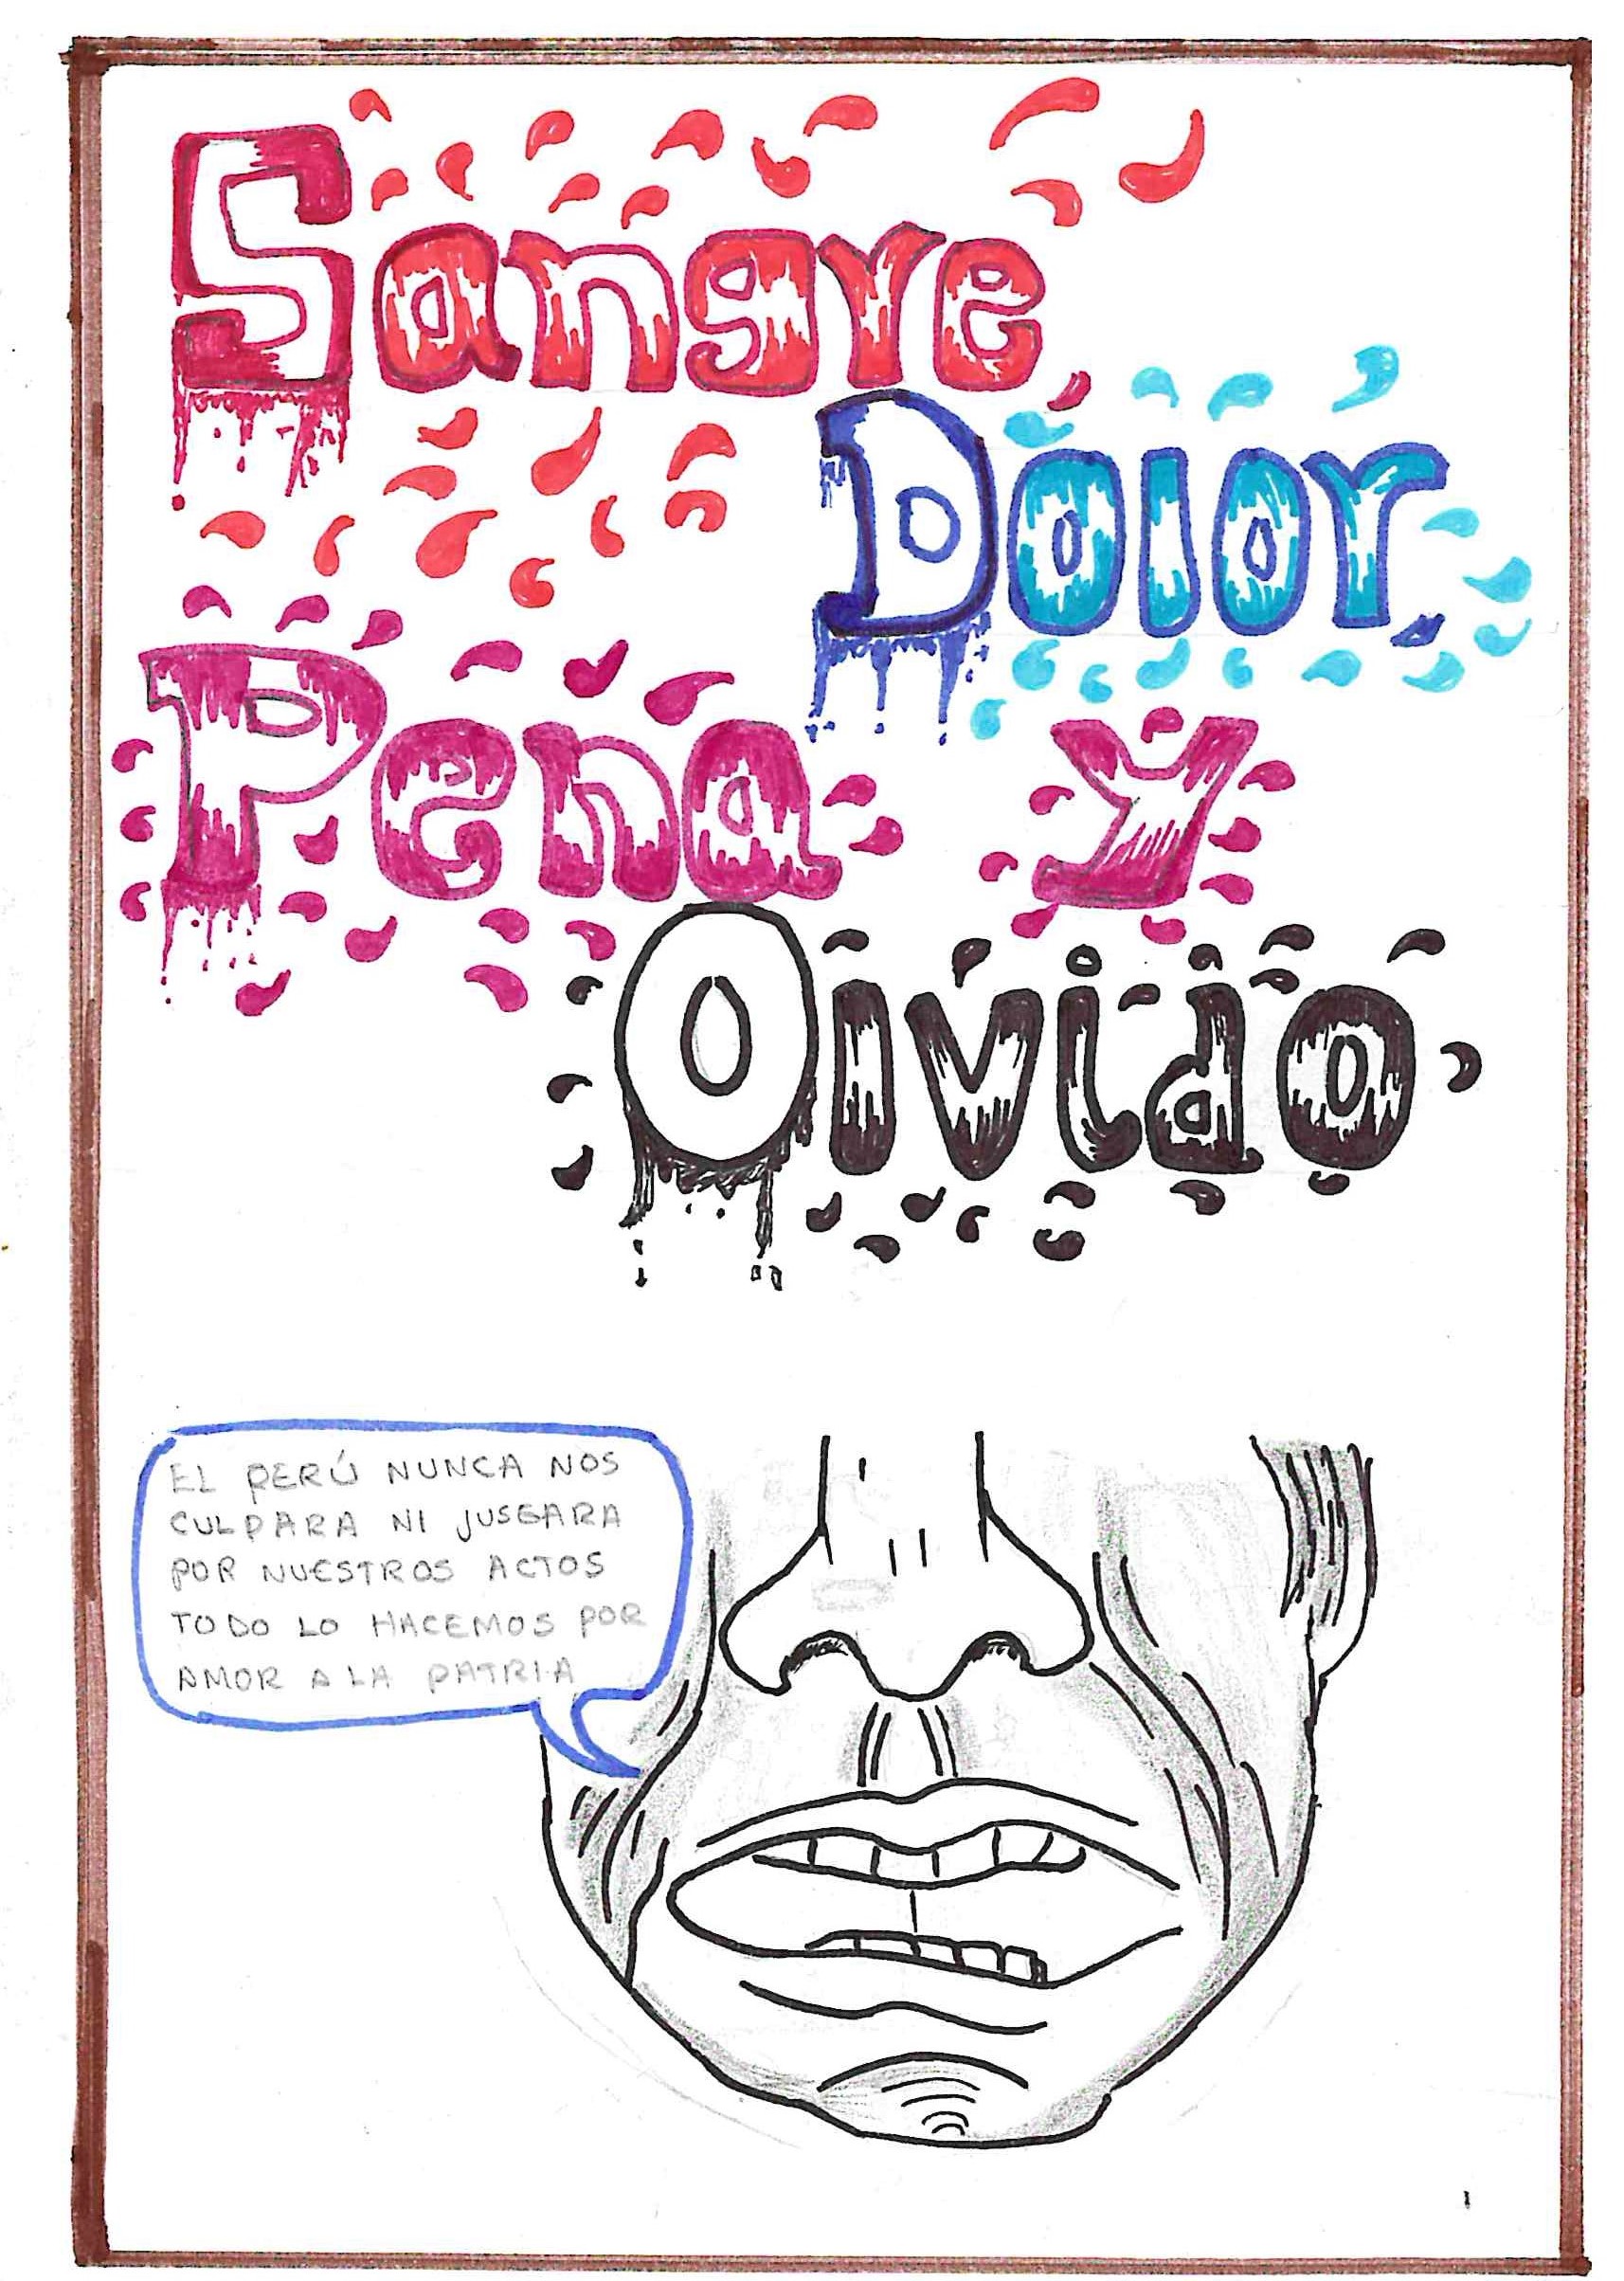 Sangre
Dolor
Pena Y
Olvido
EL PERÚ NUNCA NOS
CULPARA NI JUSGARA
POR NUESTROS ACTOS
TODO LO HACEMOS POR
AMOR A LA PATRIA
1